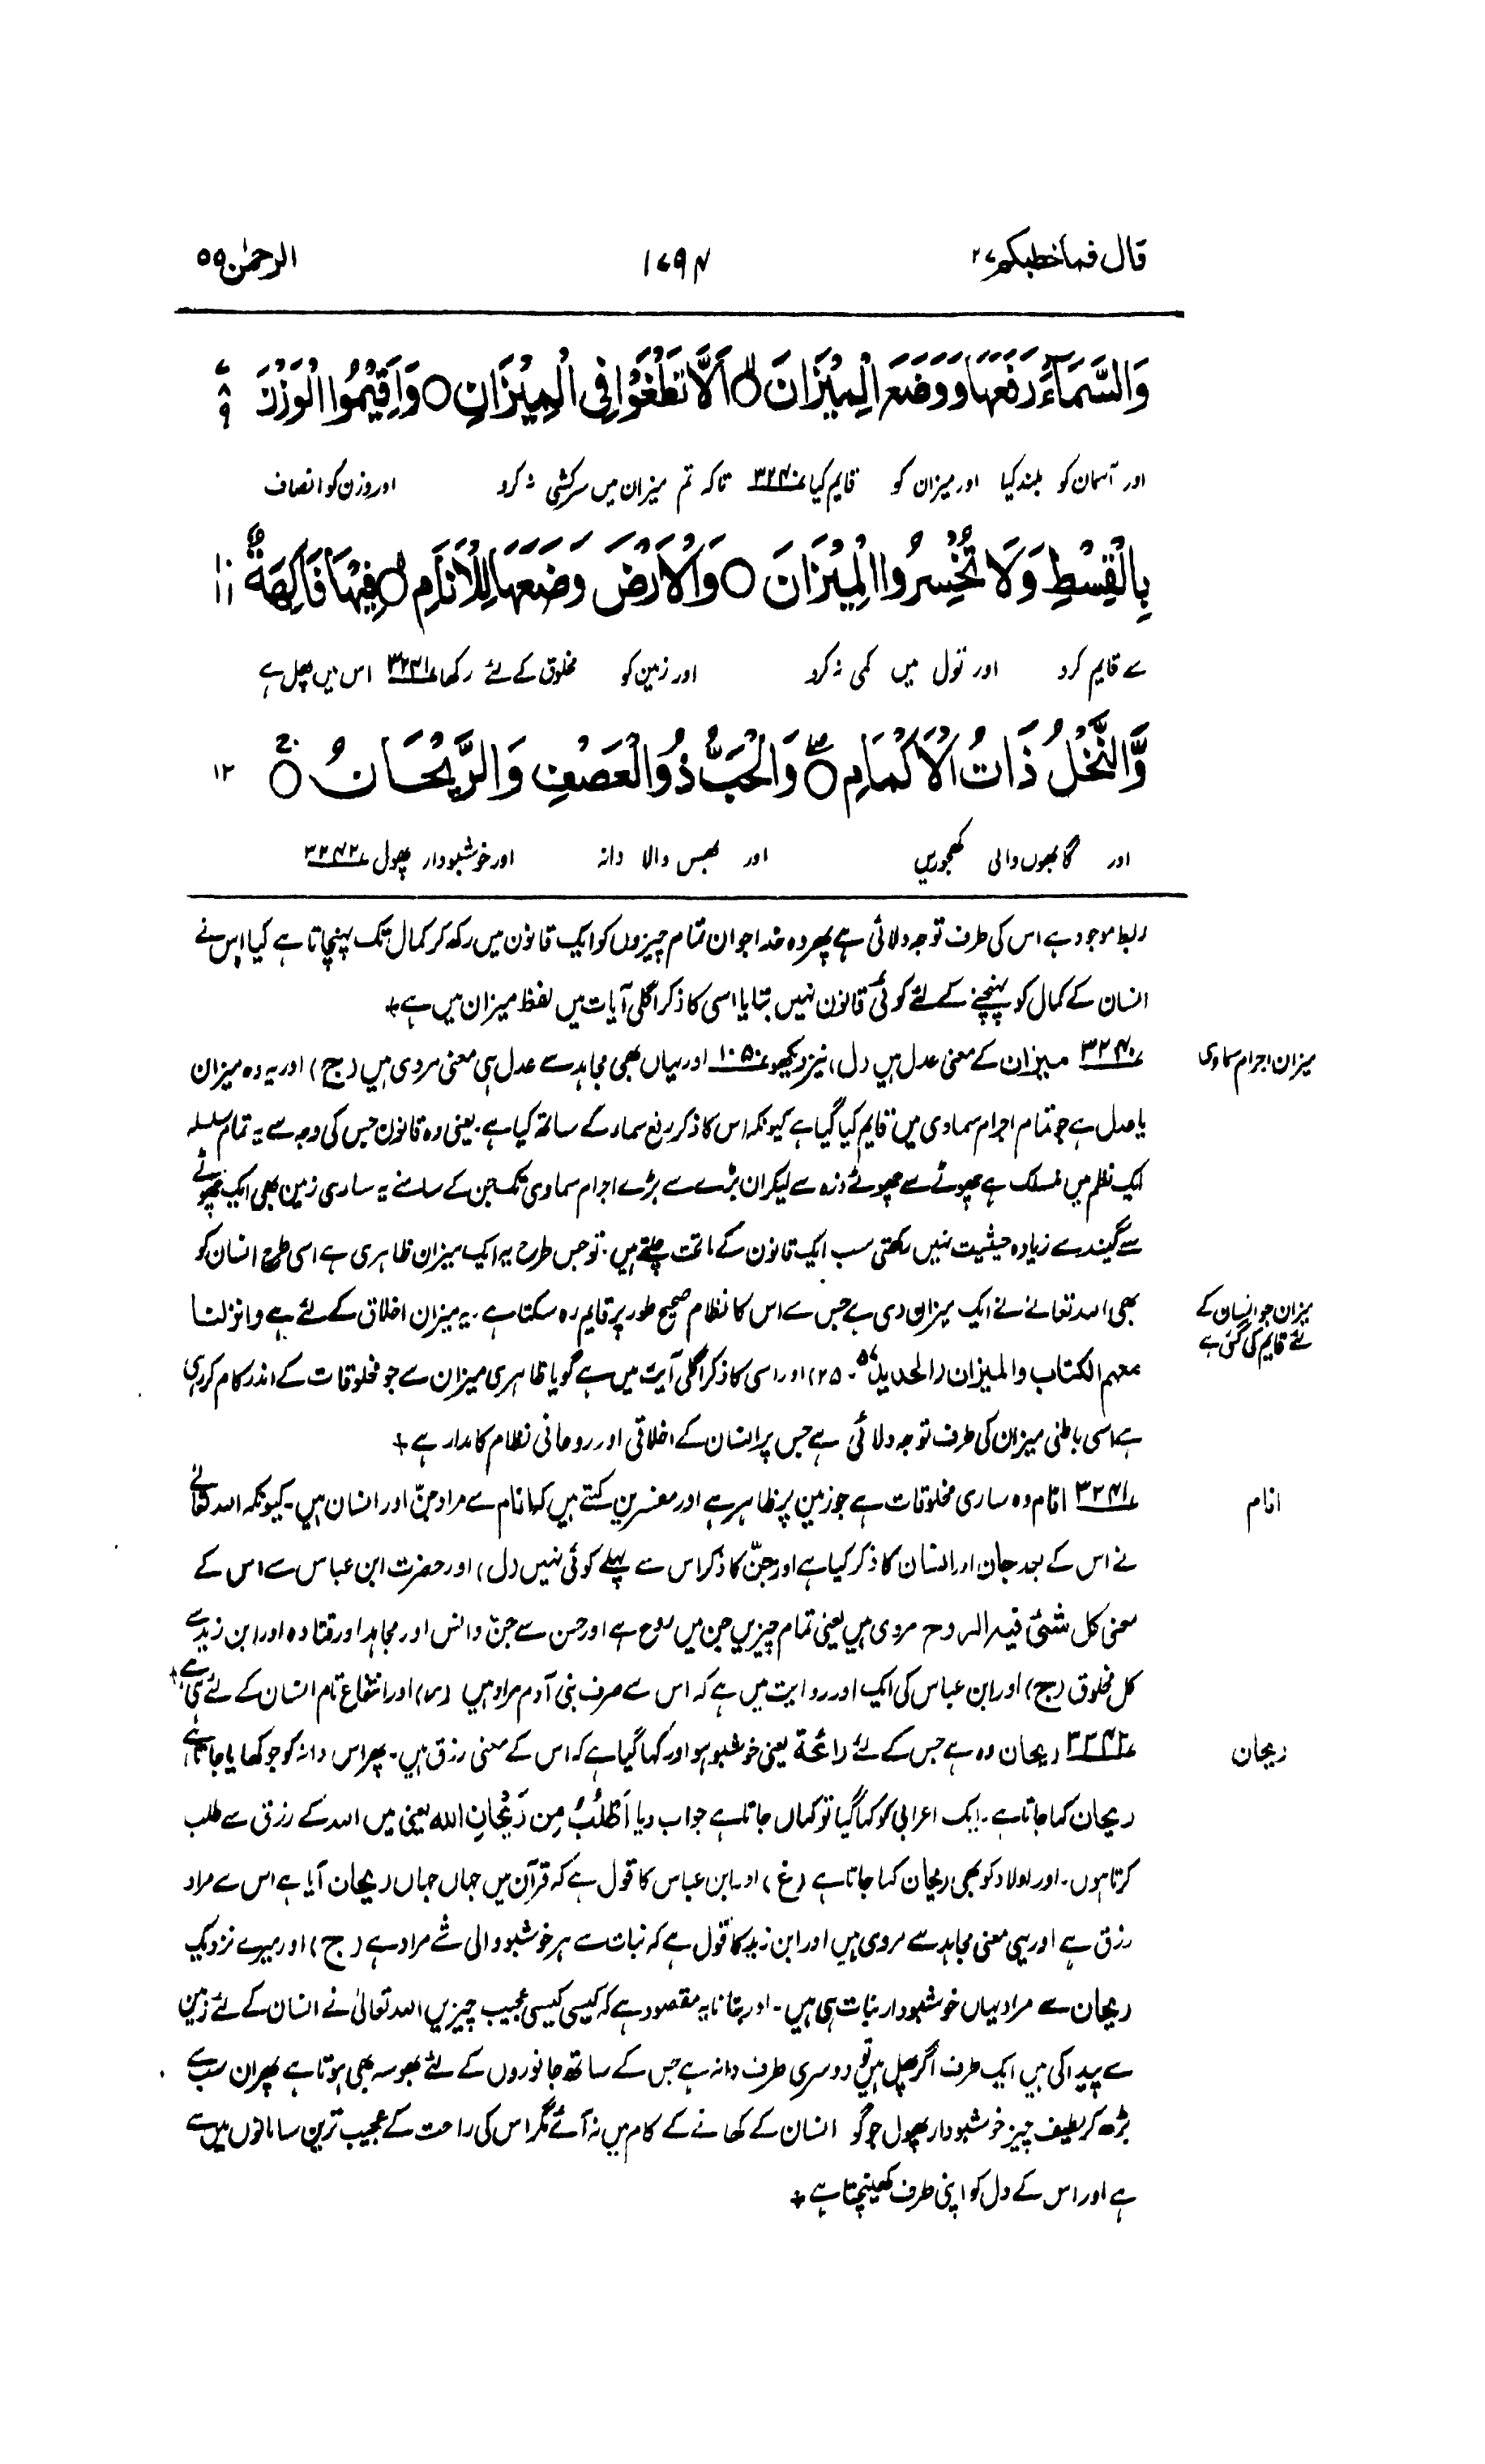 قال فماخطبکم ۲۷
۱۷۹۴
الرحمٰن ۵۵
وَالسَّمَآءَ رَفَعَهَا وَوَضَعَ الْمِيْزَانَ ۝ اَلَّا تَطْغَوْا فِى الْمِيْزَانِ ۝ وَاَقِيْمُوا الْوَزْنَ ۸ ۹
اور آسمان کو بلند کیا اور میزان کو قایم کیا ۳۲۴۰ تاکہ تم میزان میں سرکشی نہ کرو اور وزن کو انصاف
بِالْقِسْطِ وَلَا تُخْسِرُوا الْمِيْزَانَ ۝ وَالْاَرْضَ وَضَعَهَا لِلْاَنَامِ ۝ فِيْهَا فَاكِهَةٌ ۱۰ ۱۱
سے قایم کرو اور تول میں کمی نہ کرو اور زمین کو مخلوق کے لئے رکھا ۳۲۴۱ اس میں پھل ہے
وَّالنَّخْلُ ذَاتُ الْاَكْمَامِ ۝ وَالْحَبُّ ذُوالْعَصْفِ وَالرَّيْحَانُ ۝ ۱۲
اور گابھوں والی کھجوریں اور بھس والا دانہ اور خوشبودار پھول ۳۲۴۲
ربط موجود ہے اس کی طرف توجہ دلائی ہے پھر وہ خدا جو ان تمام چیزوں کو ایک قانون میں رکھ کر کمال تک پہنچاتا ہے کیا اس نے
انسان کے کمال کو پہنچنے کے لئے کوئی قانون نہیں بتایا اسی کا ذکر اگلی آیات میں لفظ میزان میں ہے +
میزان اجرام سماوی
۳۲۴۰ میزان کے معنی عدل ہیں (ل) نیز دیکھو ۱۰۵۰ اور یہاں بھی مجاہد سے عدل ہی معنی مروی ہیں (ج) اور یہ وہ میزان
یا عدل ہے جو تمام اجرام سماوی میں قایم کیا گیا ہے کیونکہ اس کا ذکر رفع سماء کے ساتھ کیا ہے۔ یعنی وہ قانون جس کی وجہ سے یہ تمام سلسلہ
ایک نظم میں منسلک ہے چھوٹے سے چھوٹے ذرہ سے لیکر ان بڑے سے بڑے اجرام سماوی تک جن کے سامنے یہ ساری زمین بھی ایک چھوٹے
سے گیند سے زیادہ حیثیت نہیں رکھتی سب ایک قانون کے ماتحت چلتے ہیں۔ تو جس طرح یہ ایک میزان ظاہری ہے اسی طرح انسان کو
میزان جو انسان کے
لئے قایم کی گئی ہے
بھی اللہ تعالےٰ نے ایک میزان دی ہے جس سے اس کا نظام صحیح طور پر قایم رہ سکتا ہے۔ یہ میزان اخلاق کے لئے ہے وانزلنا
معهم الکتاب والمیزان (الحدید ۵۷۔ ۲۵) اور اسی کا ذکر اگلی آیت میں ہے گویا ظاہری میزان سے جو مخلوقات کے اندر کام کر رہی
ہے اسی باطنی میزان کی طرف توجہ دلائی ہے جس پر انسان کے اخلاقی اور روحانی نظام کا مدار ہے +
انام
۳۲۴۱ انام وہ ساری مخلوقات ہے جو زمین پر ظاہر ہے اور مفسرین کہتے ہیں کہ انام سے مراد جنّ اور انسان ہیں۔ کیونکہ اللہ تعالےٰ
نے اس کے بعد جان اور انسان کا ذکر کیا ہے اور جنّ کا ذکر اس سے پہلے کوئی نہیں (ل) اور حضرت ابن عباس سے اس کے
معنی کل شئی فیه الروح مروی ہیں یعنی تمام چیزیں جن میں روح ہے اور حسن سے جنّ وانس اور مجاہد اور قتادہ اور ابن زید سے
کل مخلوق (ج) اور ابن عباس کی ایک اور روایت میں ہے کہ اس سے صرف بنی آدم مراد ہیں (ر) اور انتفاع تام انسان کے لئے ہی ہے +
ریحان
۳۲۴۲ ریحان وہ ہے جس کے لئے رائحة یعنی خوشبو ہو اور کہا گیا ہے کہ اس کے معنی رزق ہیں۔ پھر اس دانہ کو جو کھایا جاتا ہے
ریحان کہا جاتا ہے۔ ایک اعرابی کو کہا گیا تو کہاں جاتا ہے جواب دیا اَطْلُبُ مِن رَیْحَانِ الله یعنی میں اللہ کے رزق سے طلب
کرتا ہوں۔ اور اولاد کو بھی ریحان کہا جاتا ہے (غ) اور ابن عباس کا قول ہے کہ قرآن میں جہاں جہاں ریحان آیا ہے اس سے مراد
رزق ہے اور یہی معنی مجاہد سے مروی ہیں اور ابن زید کا قول ہے کہ نبات سے ہر خوشبو والی شے مراد ہے (ج) اور میرے نزدیک
ریحان سے مراد یہاں خوشبودار نبات ہی ہیں۔ اور بتانا یہ مقصود ہے کہ کیسی کیسی عجیب چیزیں اللہ تعالیٰ نے انسان کے لئے زمین
سے پیدا کی ہیں ایک طرف اگر پھل ہیں تو دوسری طرف دانہ ہے جس کے ساتھ جانوروں کے لئے بھوسہ بھی ہوتا ہے پھر ان سب سے
بڑھ کر لطیف چیز خوشبودار پھول جو گو انسان کے کھانے کے کام میں نہ آئے مگر اس کی راحت کے عجیب ترین سامانوں میں سے
ہے اور اس کے دل کو اپنی طرف کھینچتا ہے +